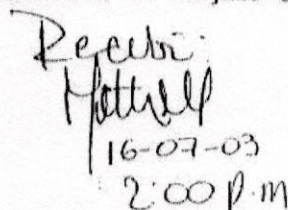 Recibi:
16-07-03
2:00 p.m